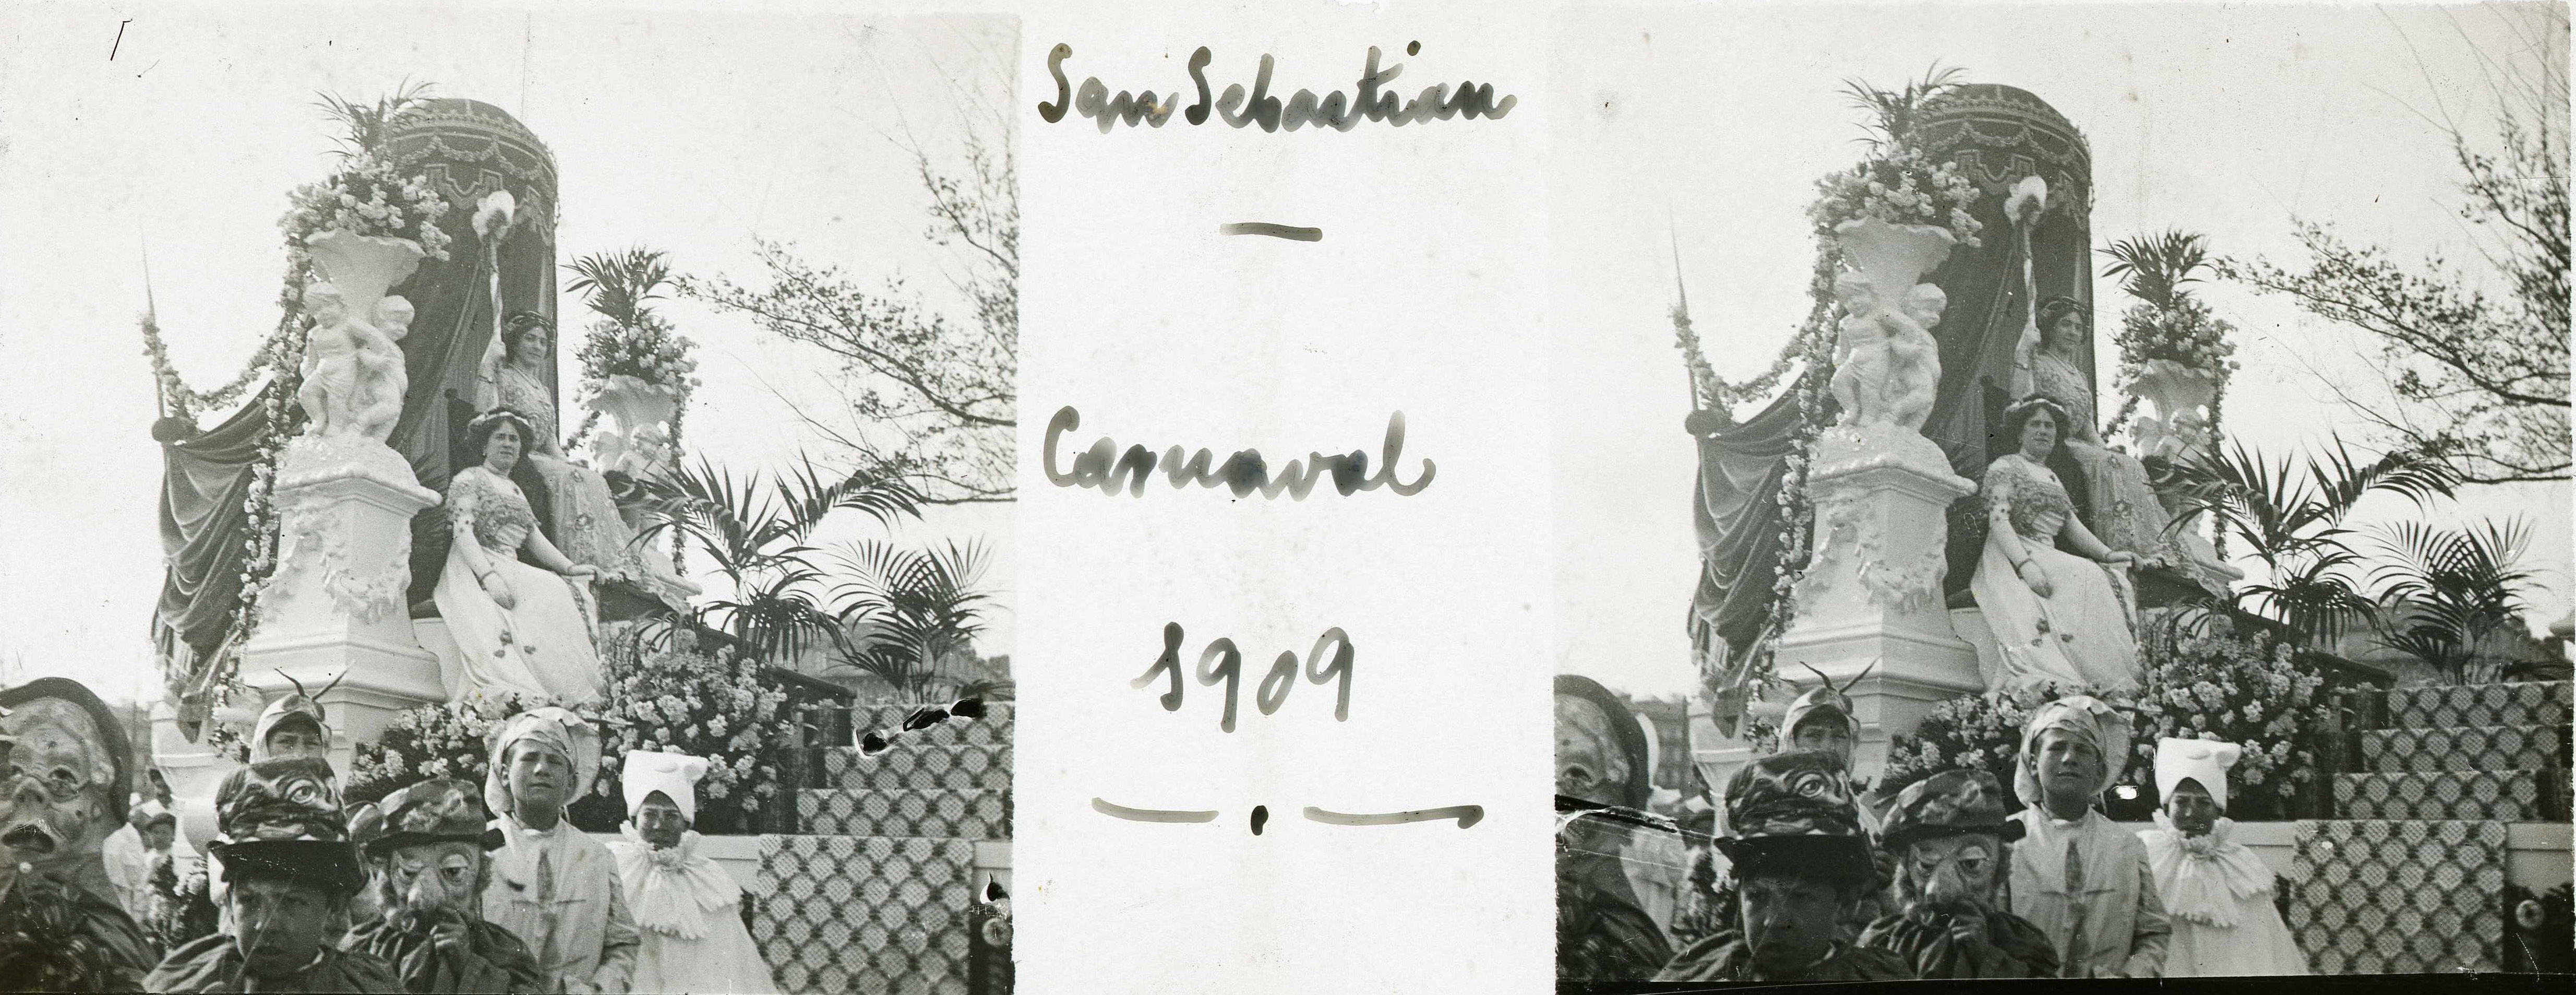 San Sebastian
—
Carnaval
1909